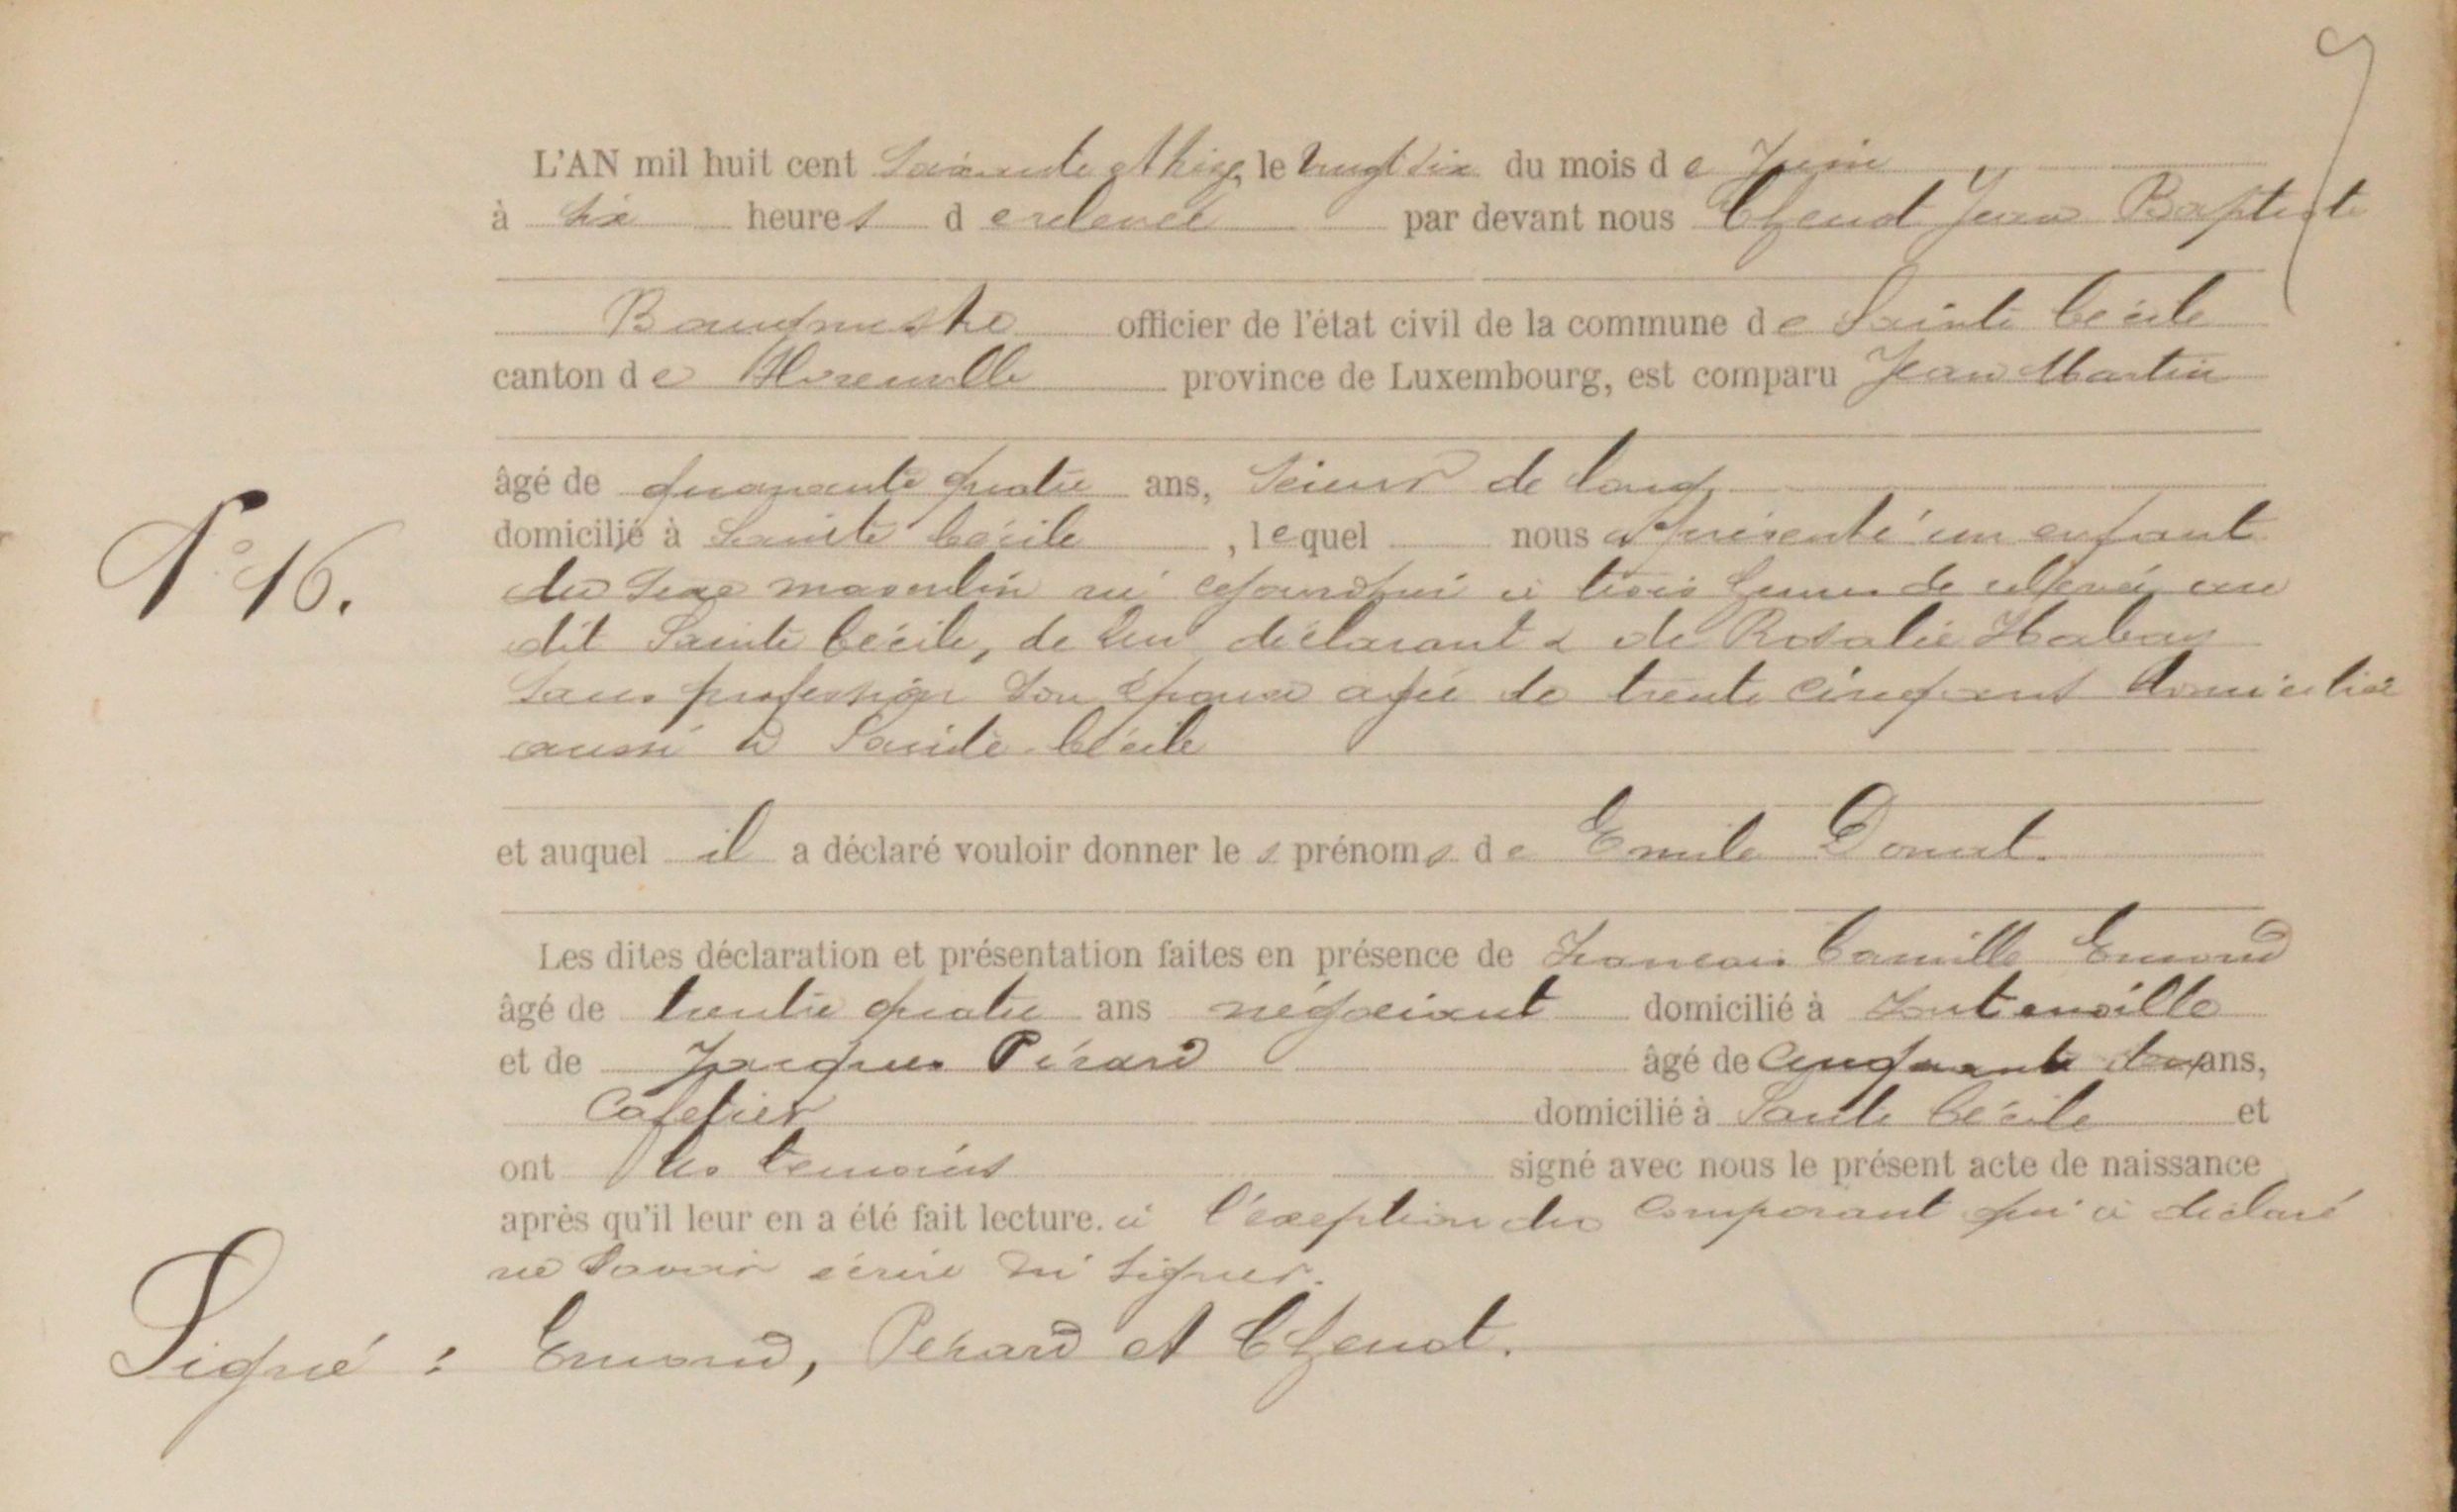 9
L'AN mil huit cent Soixante et treize, le vingt six du mois de Juin
à six heures de relevée par devant nous Thenot Jean Baptiste
Bourgmestre officier de l'état civil de la commune de Sainte Cécile
canton de Florenville province de Luxembourg, est comparu Jean Martin
âgé de quarante quatre ans, Scieur de long
domicilié à Sainte Cécile, lequel nous a présenté un enfant
du Sexe masculin né cejourd'hui à trois heures de relevée, au
dit Sainte Cécile, de lui déclarant & de Rosalie Habay
Sans profession Son épouse agée de trente cinq ans domiciliée
aussi à Sainte Cécile
N° 16.
et auquel il a déclaré vouloir donner les prénoms de Emile Donat.
Les dites déclaration et présentation faites en présence de Francois Camille Emond
âgé de trente quatre ans négociant domicilié à Fontenoille
et de Jacques Pérard âgé de cinquante deux ans,
Cafetier domicilié à Sainte Cécile et
ont les temoins signé avec nous le présent acte de naissance
après qu'il leur en a été fait lecture. à l'exeption du Comparant qui a déclaré
ne Savoir écrire ni Signer.
Signé : Emond, Pérard et Thenot.